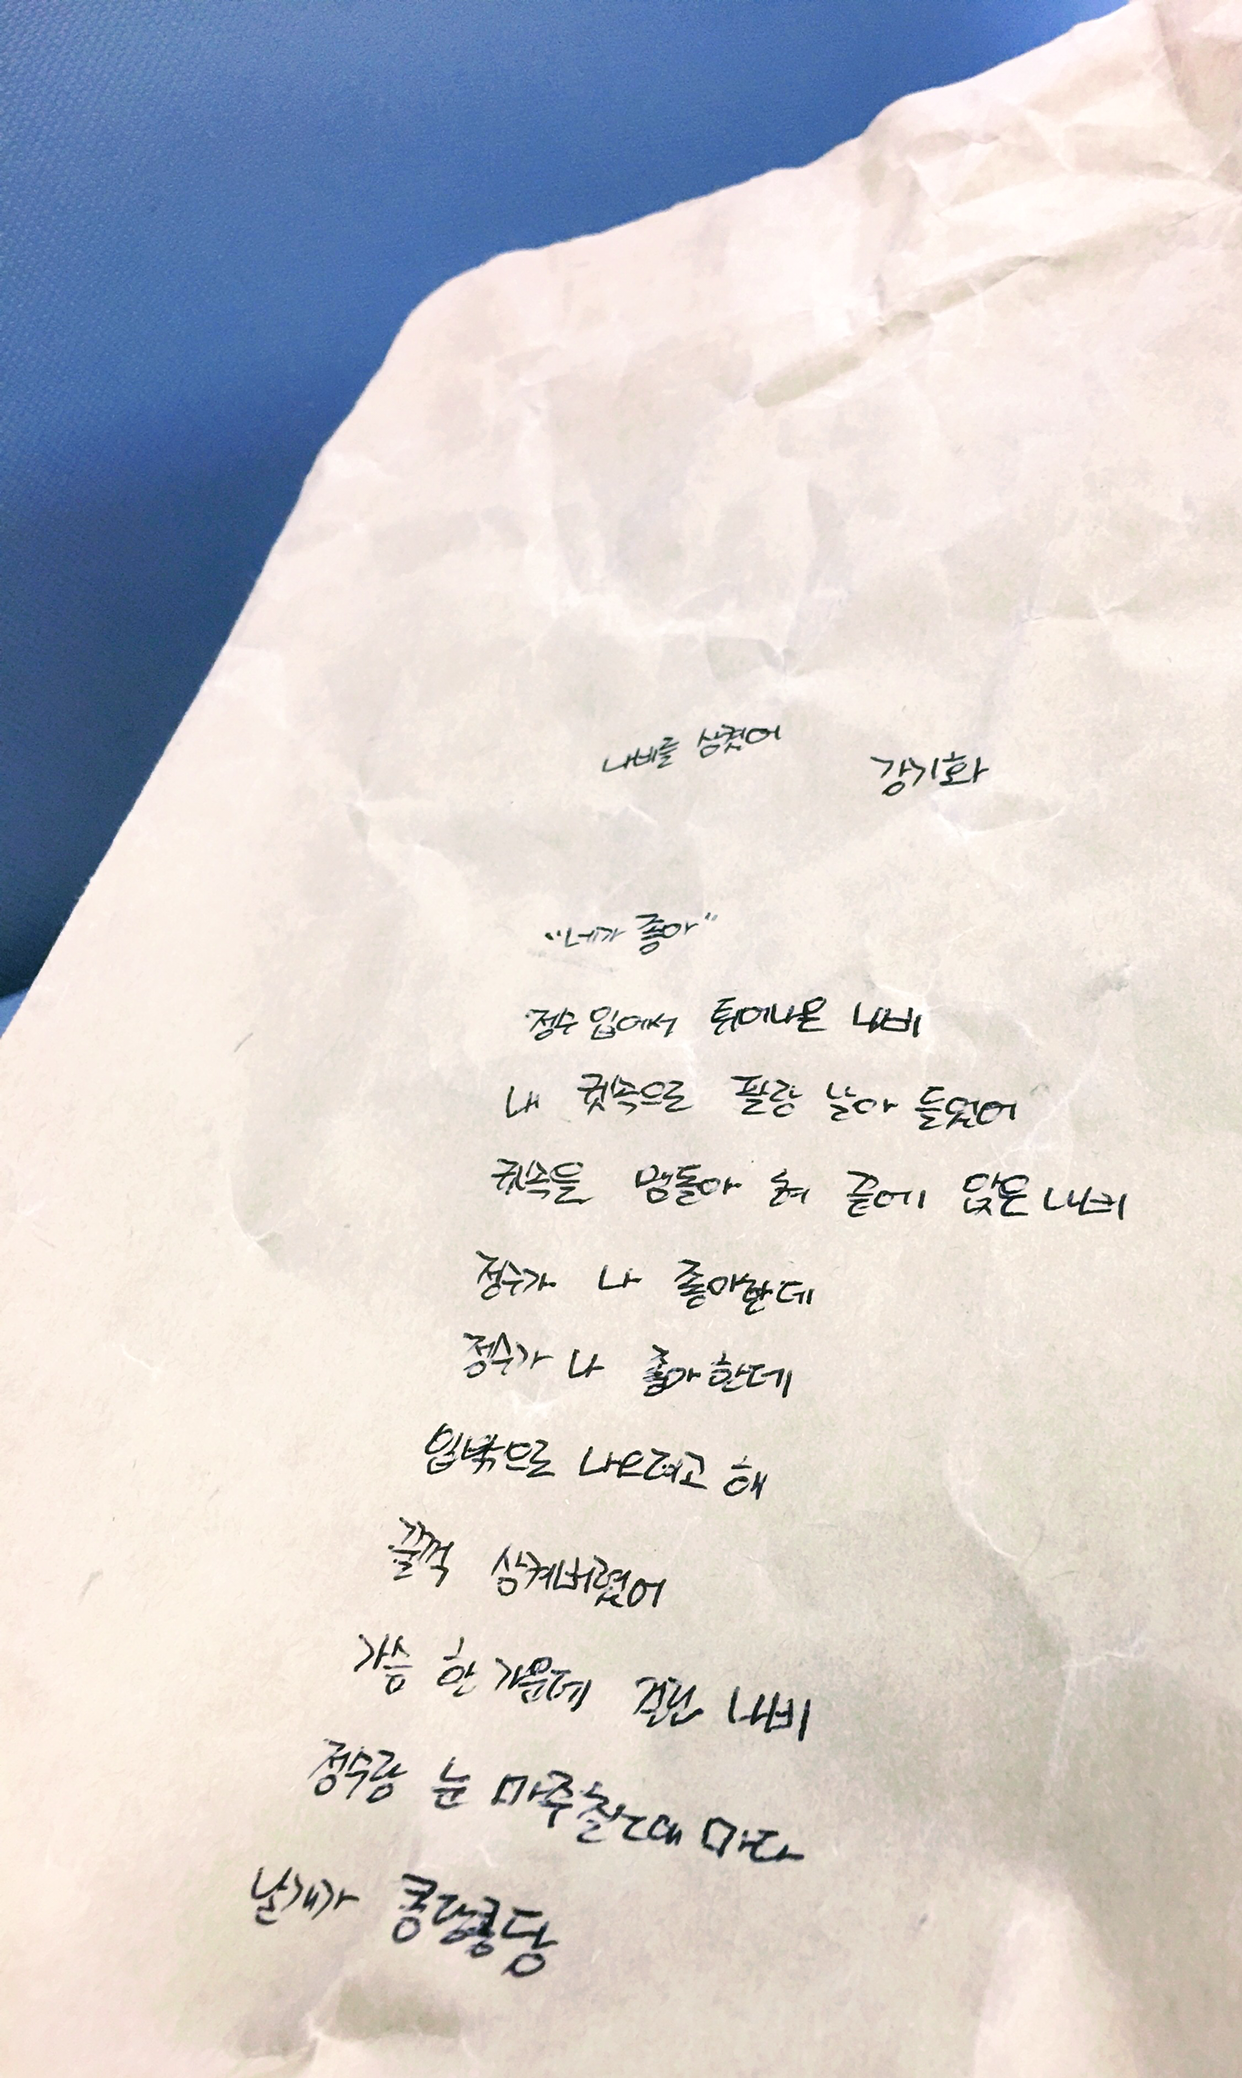 나비를 삼켰어
강기화
"네가 좋아"
정수 입에서 튀어나온 나비
내 귓속으로 팔랑 날아 들었어
귓속을 맴돌아 혀 끝에 앉은 나비
정수가 나 좋아한데
정수가 나 좋아한데
입밖으로 나오려고 해
꿀꺽 삼켜버렸어
가슴 한 가운데 걸린 나비
정수랑 눈 마주칠때 마다
날개가 콩당콩당